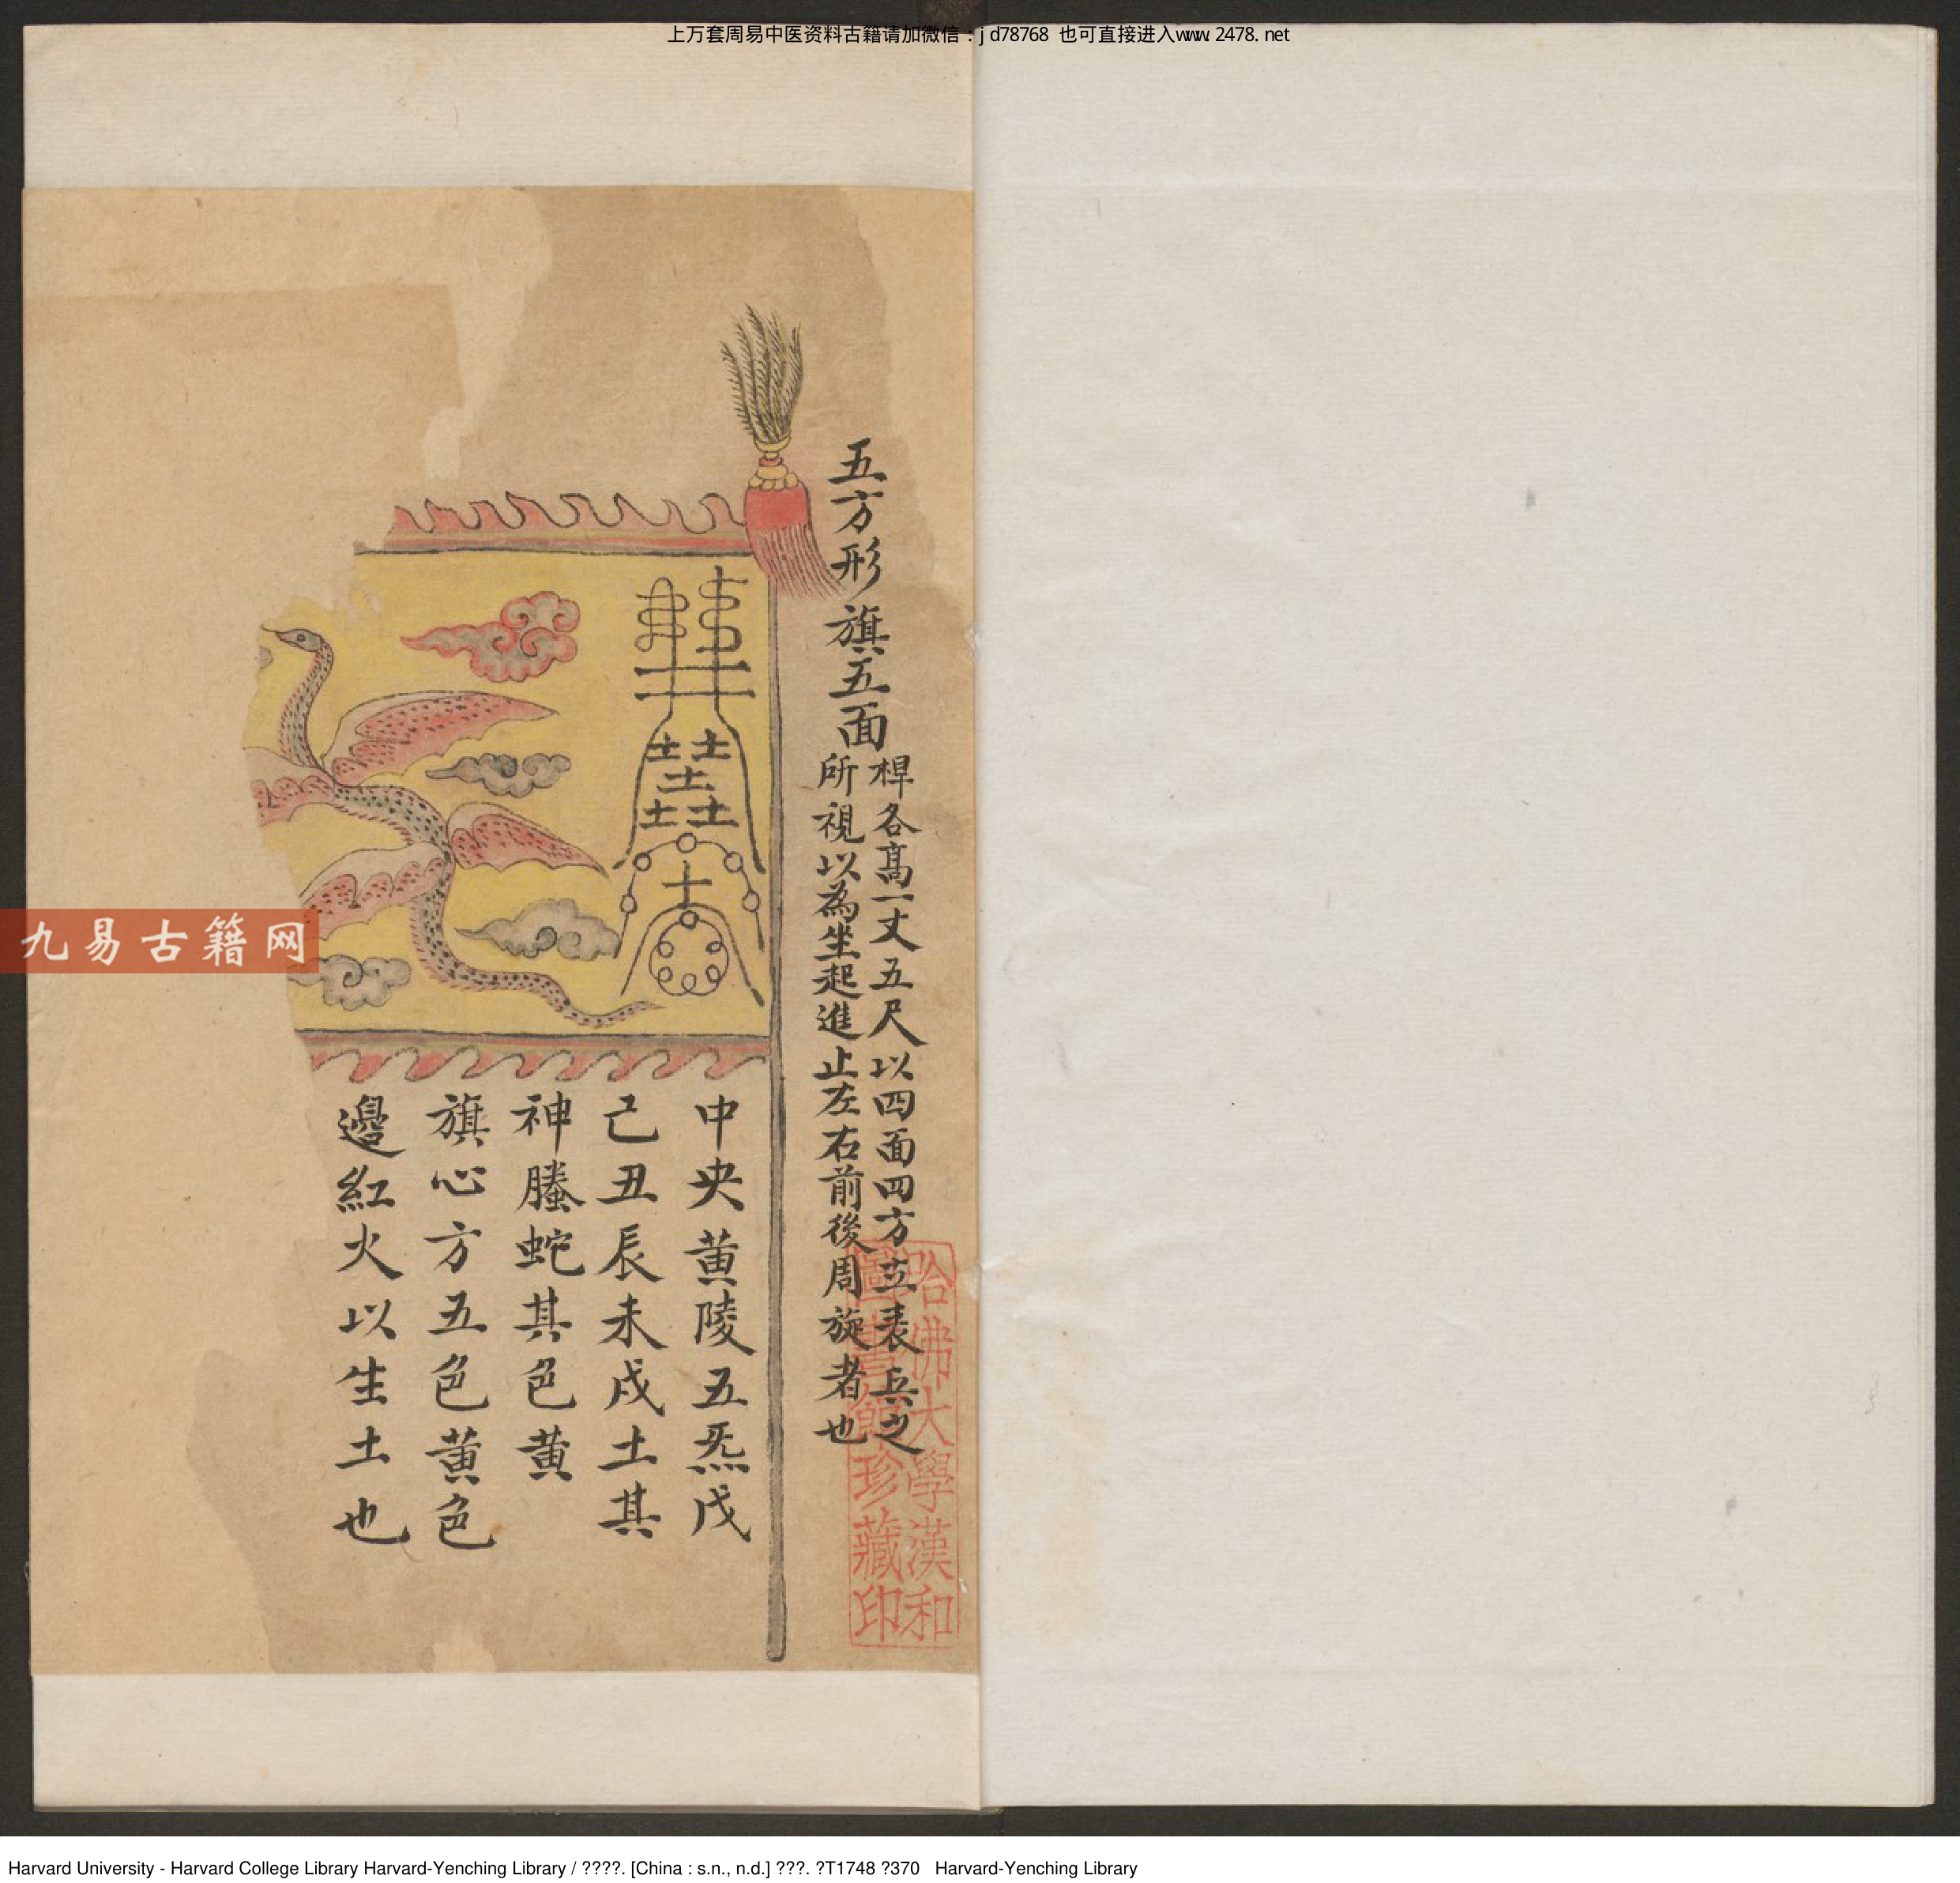 上万套周易中医资料古籍请加微信：jd78768 也可直接进入www.2478.net
五方形旗五面
桿各高一丈五尺以四面四方立表兵之
所視以為坐起進止左右前後周旋者也
中央黄陵五炁戊
己丑辰未戌土其
神騰蛇其色黄
旗心方五色黄色
邊紅火以生土也
土土
土
土土
哈佛大學漢和
圖書館珍藏印
九易古籍网
Harvard University - Harvard College Library Harvard-Yenching Library / ????. [China : s.n., n.d.] ???. ?T1748 ?370 Harvard-Yenching Library